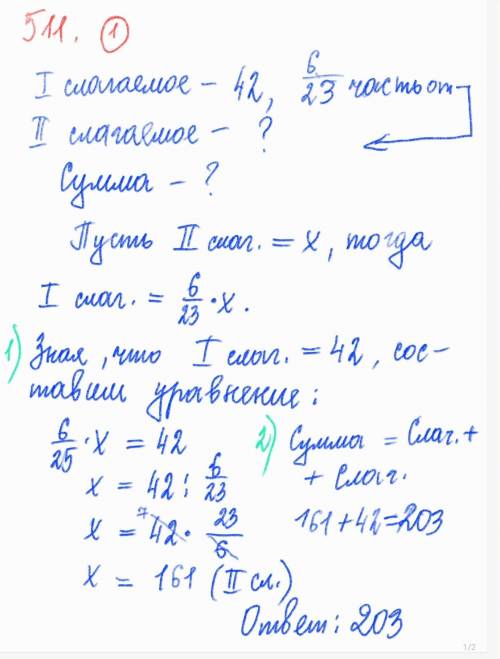 511. ①
I слагаемое – 42, 6/23 часть от
II слагаемое – ?
Сумма – ?
Пусть II слаг. = x, тогда
I слаг. = 6/23 · x.
1) Зная, что I слаг. = 42, сос-
тавим уравнение:
6/25 · x = 42
x = 42 : 6/23
x = 42 7 · 23/6
x = 161 (II сл.)
2) Сумма = Слаг. +
+ Слаг.
161 + 42 = 203
Ответ: 203
1/2